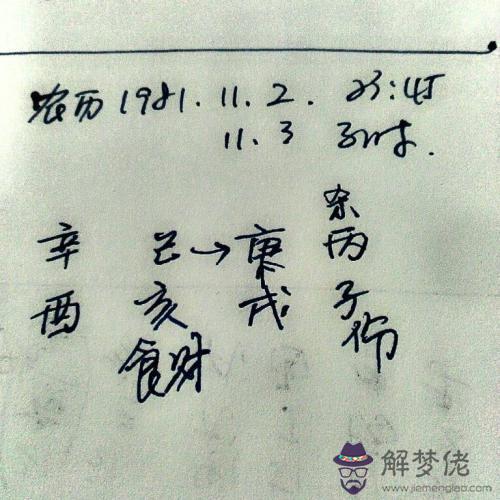 农历1981.11.2. 23:45
11.3 子时.
辛 己→庚 丙
酉 亥 戌 子
食财 伤
解梦佬
www.jiemenglao.com